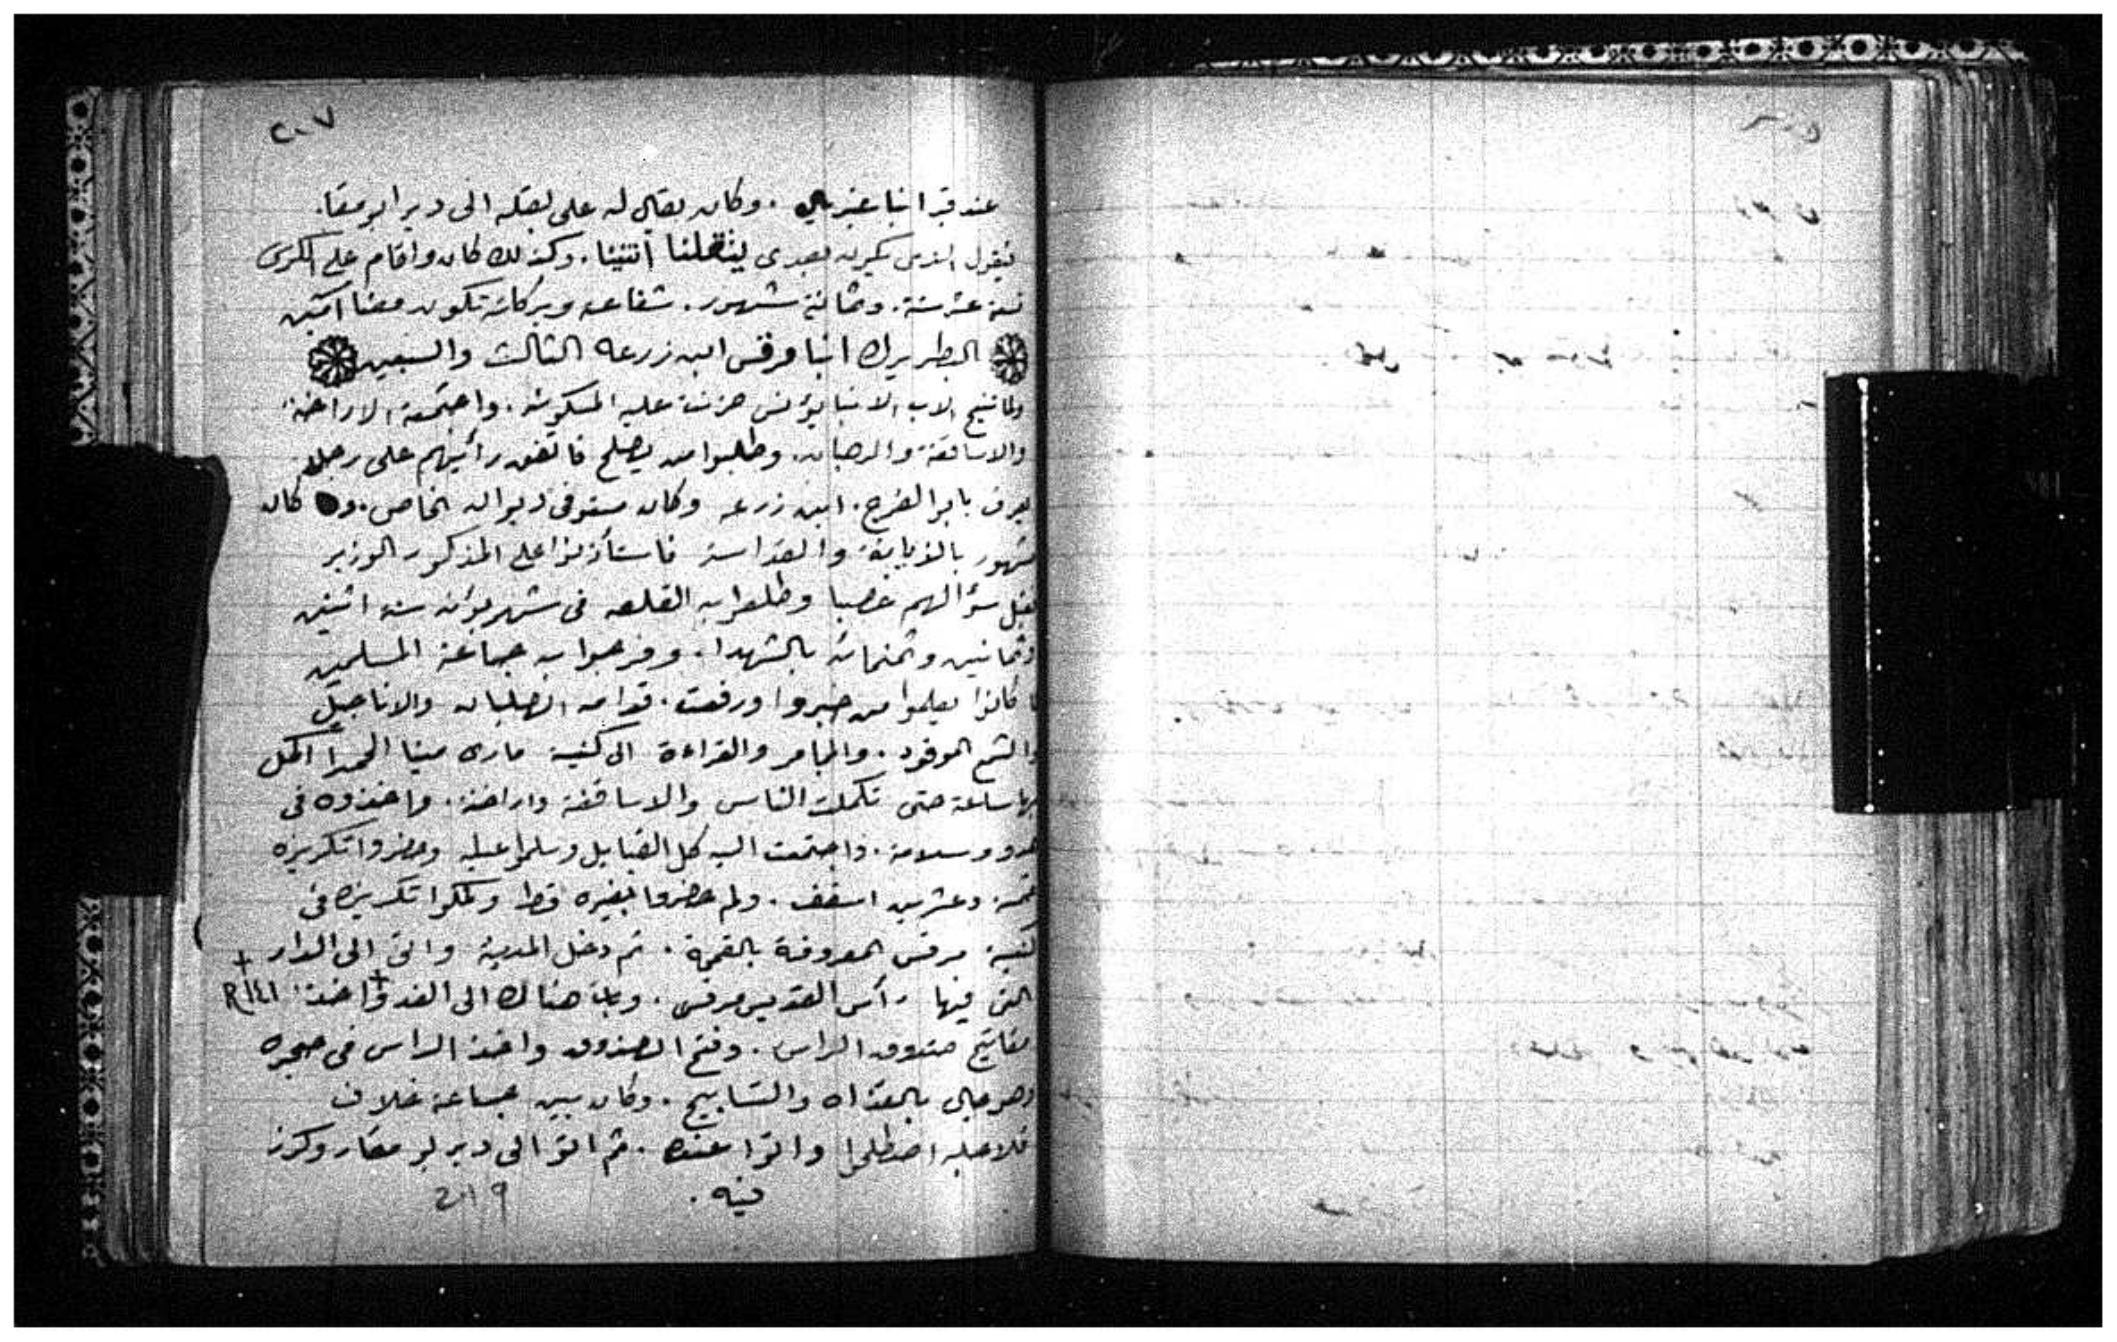 ٢٠٧
عند قبر انبا غبريال . وكان يقال له على نقله الى دير ابو مقار.
فيقول الذى يكون بعدى ينقلنا اثنينا . وكذلك كان واقام على الكرسى
عشر سنة . وثمانية شهور . شفاعته وبركاته تكون معنا آمين
البطريرك انبا مرقس ابن زرعه الثالث والسبعين
ولما تنيح الاب الانبا يؤنس حزنت عليه المسكونة . واجتمعت الاراخنة
والاساقفة والرهبان . وطلبوا من يصلح فاتفق رأييهم على رجل
يعرف بابو الفرج . ابن زرعه وكان مستوفى ديوان الخاص . و كان
مشهور بالديانة والقداسة فاستأذنوا على المذكور الوزير
فقبل سؤالهم غصبا وطلعوا به القلعه فى شهر بؤنه سنة اثنين
وثمانين وثمنمائة بالشهدا . وفرجوا به جماعة المسلمين
ما كانوا يعلموا من خبروا ورفعت . قدامه الصلبان والاناجيل
والشمع الموقود . والمجامر والقراءة الى كنيسة مارى مينا الحمرا
بها ساعة حتى تكملت الناس والاساقفة واراخنة . واخذوه فى
هدو وسلامة . واجتمعت اليه كل القبايل وسلموا عليه وحضروا تكريزه
خمسة وعشرين اسقف . ولم حضروا لغيره قط وكملوا تكريزه فى
كنيسة مرقس المعروفة بالقمجة . ثم دخل المدينة واتى الى الدار
التى فيها رأس القديس مرقس . وبات هناك الى الغد واخذ ١١٤١
مفاتيح صندوق الراس . وفتح الصندوق واخذ الراس فى حجره
وهو بالقراه والتسابيح . وكان بين جماعة خلاف
فلاجله اصطلحوا واتوا عنده . ثم اتوا الى دير ابو مقار وكرز
فيه .